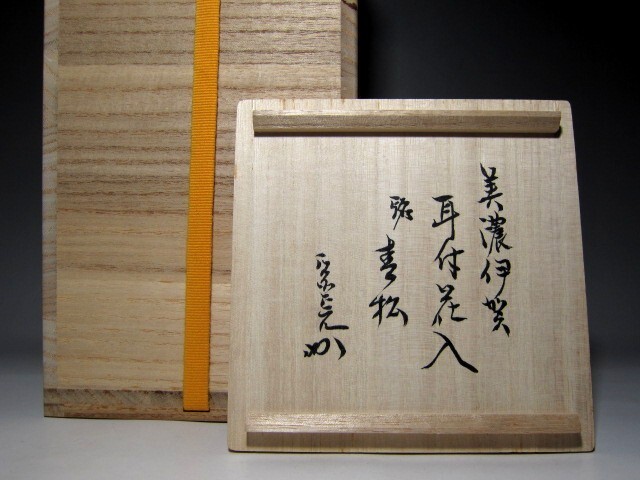 美濃伊賀
耳付花入
銘 青松